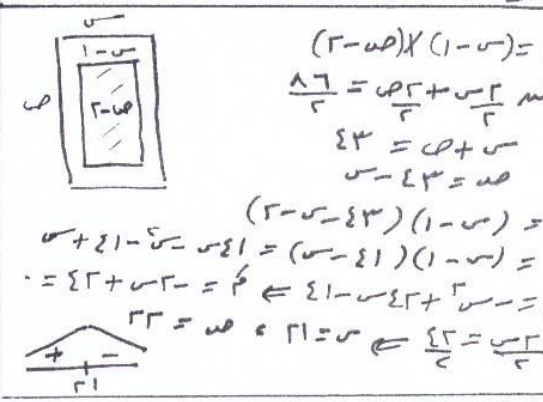 س
س-١
ص
ص-٢
=(س-١)X(ص-٢)
٢س/٢ + ٢ص/٢ = ٨٦/٢
س+ص = ٤٣
ص = ٤٣-س
= (س-١)(٤٣-س-٢)
= (س-١)(٤١-س) = ٤١س-س٢-٤١+س
= -س٢+٤٢س-٤١ ⇐ مَ = -٢س+٤٢ = ٠
٢س/٢ = ٤٢/٢ ⇐ س=٢١ ، ص = ٢٢
+ -
٢١